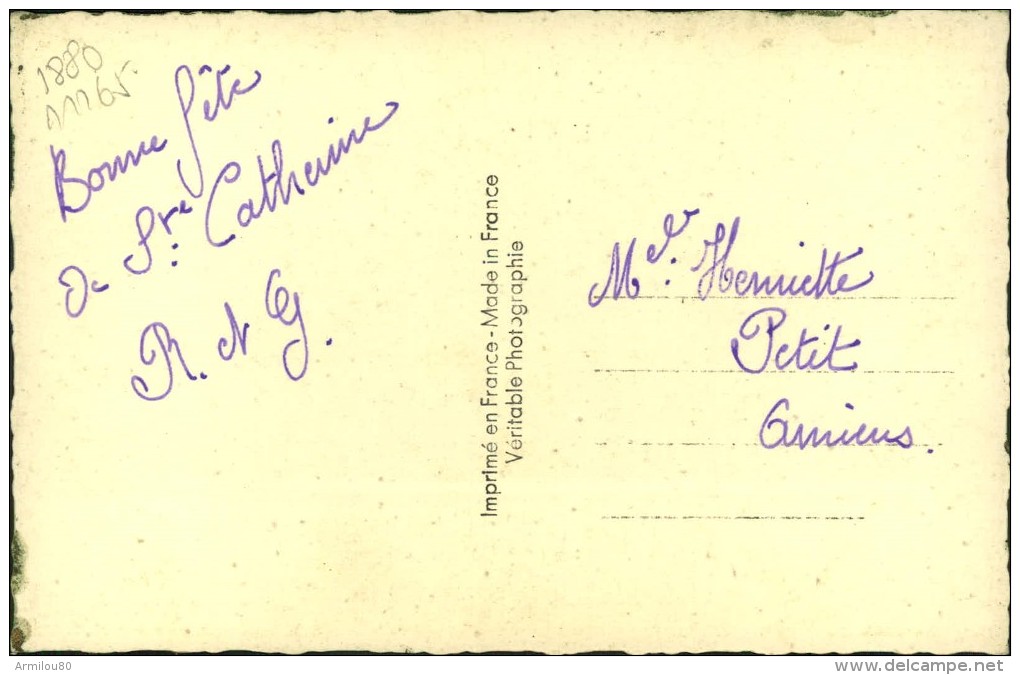 1880
11165
Bonne fête
de Ste. Catherine
R. N G.
Imprimé en France - Made in France
Véritable Photographie
Melle. Henriette
Petit
Amiens.
Armilou80
www.delcampe.net